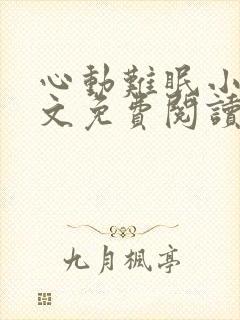 心動難眠小
文免費閱讀
九月楓亭